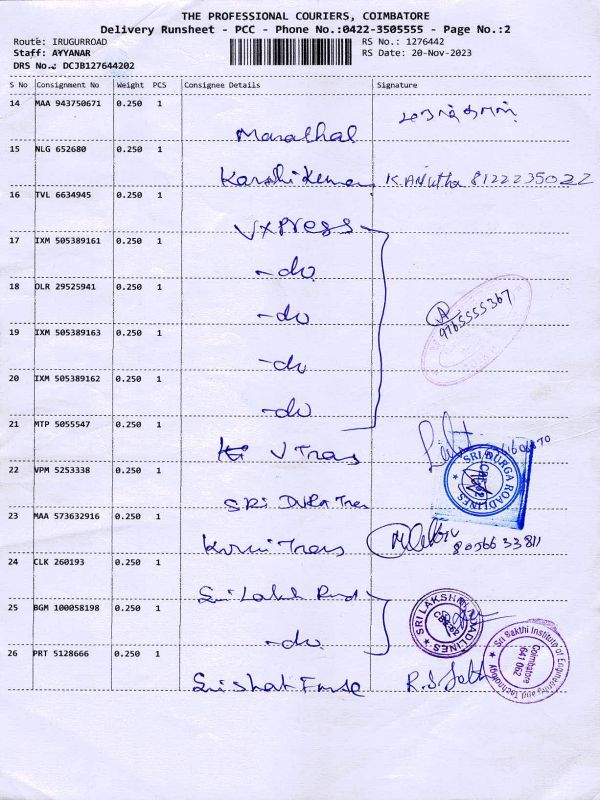 THE PROFESSIONAL COURIERS, COIMBATORE
Delivery Runsheet - PCC - Phone No.:0422-3505555 - Page No.:2
Route: IRUGURROAD
RS No.: 1276442
Staff: AYYANAR
RS Date: 20-Nov-2023
DRS No.: DCJB127644202
S No Consignment No Weight PCS Consignee Details Signature
14 MAA 943750671 0.250 1
Marathal
15 NLG 652680 0.250 1
K. Anitha 8122235022
16 TVL 6634945 0.250 1
VXPRESS
17 IXM 505389161 0.250 1
-do
18 DLR 29525941 0.250 1
-do
9765555367
19 IXM 505389163 0.250 1
-do
20 IXM 505389162 0.250 1
-do
21 MTP 5055547 0.250 1
V Trans
22 VPM 5253338 0.250 1
SRI DURGA ROADLINES
SRi DURGA Trans
23 MAA 573632916 0.250 1
8056633811
24 CLK 260193 0.250 1
Sri Laksh Road
25 BGM 100058198 0.250 1
SRI LAKSHMI ROADLINES
-do
Sri Sakthi Institute of Engineering and Technology
Coimbatore
641 062
26 PRT 5128666 0.250 1